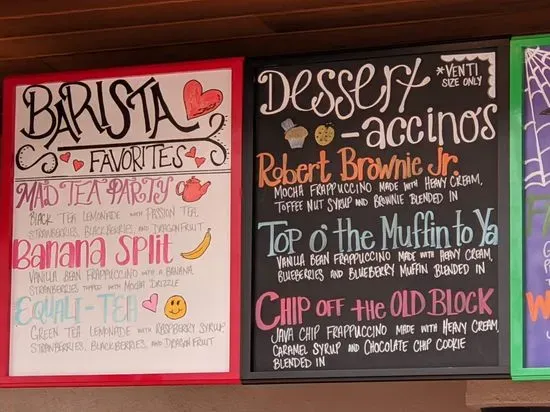 BARISTA
FAVORITES
MAD TEA PARTY
BLACK TEA LEMONADE WITH PASSION TEA,
STRAWBERRIES, BLACKBERRIES, AND DRAGONFRUIT
Banana Split
VANILLA BEAN FRAPPUCCINO WITH A BANANA,
STRAWBERRIES TOPPED WITH MOCHA DRIZZLE
EQUALI-TEA
GREEN TEA LEMONADE WITH RASPBERRY SYRUP,
STRAWBERRIES, BLACKBERRIES, AND DRAGON FRUIT
Dessert
*VENTI
SIZE ONLY
-accinos
Robert Brownie Jr.
MOCHA FRAPPUCCINO MADE WITH HEAVY CREAM,
TOFFEE NUT SYRUP AND BROWNIE BLENDED IN
Top o' the Muffin to Ya
VANILLA BEAN FRAPPUCCINO MADE WITH HEAVY CREAM,
BLUEBERRIES AND BLUEBERRY MUFFIN BLENDED IN
CHIP OFF the OLD BLOCK
JAVA CHIP FRAPPUCCINO MADE WITH HEAVY CREAM,
CARAMEL SYRUP AND CHOCOLATE CHIP COOKIE
BLENDED IN